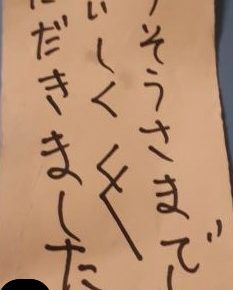 そうさまでし
いしくい
だきました